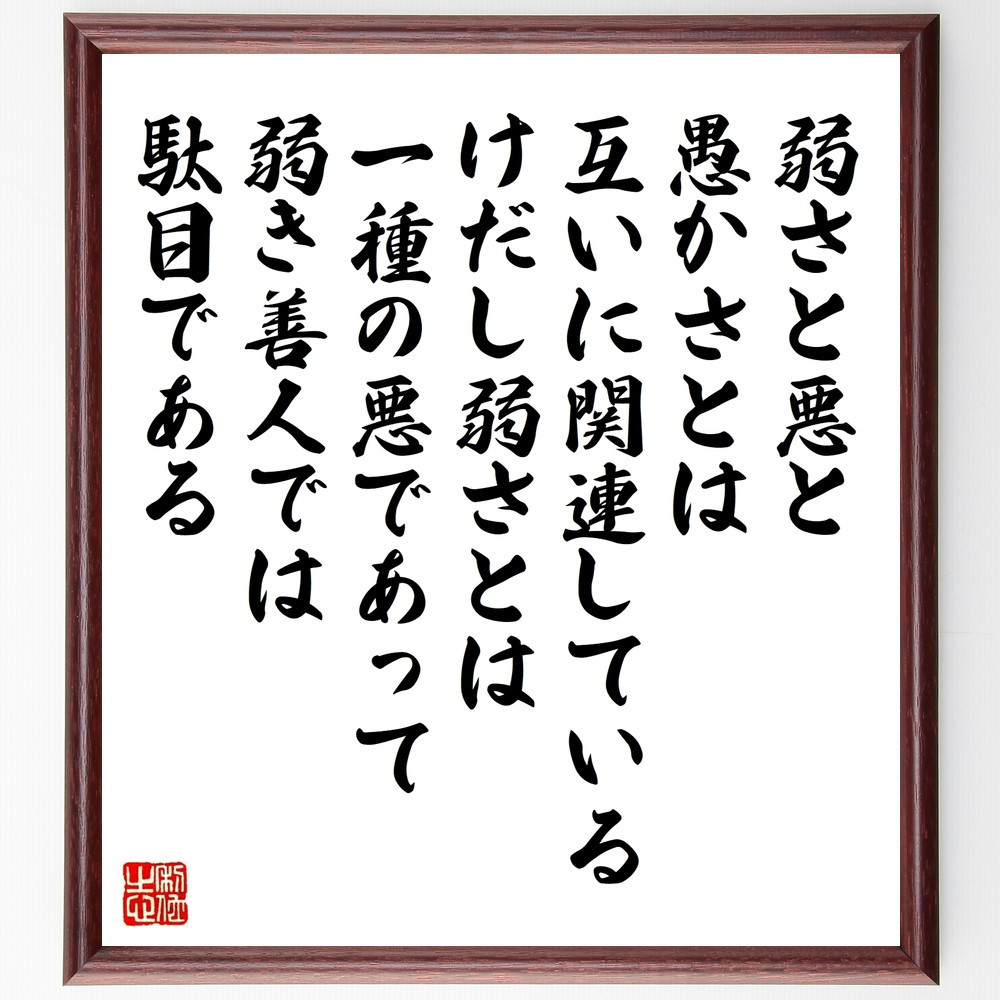 弱さと悪と
愚かさとは
互いに関連している
けだし弱さとは
一種の悪であって
弱き善人では
駄目である